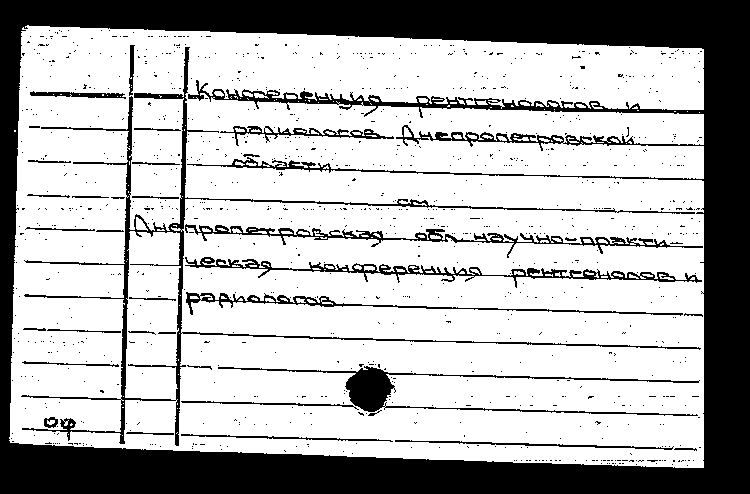 Конференция рентгенологов и
радиологов Днепропетровской
области
см
Днепропетровская обл. научно-практи-
ческая конференция рентгенологов и
радиологов
ОФ